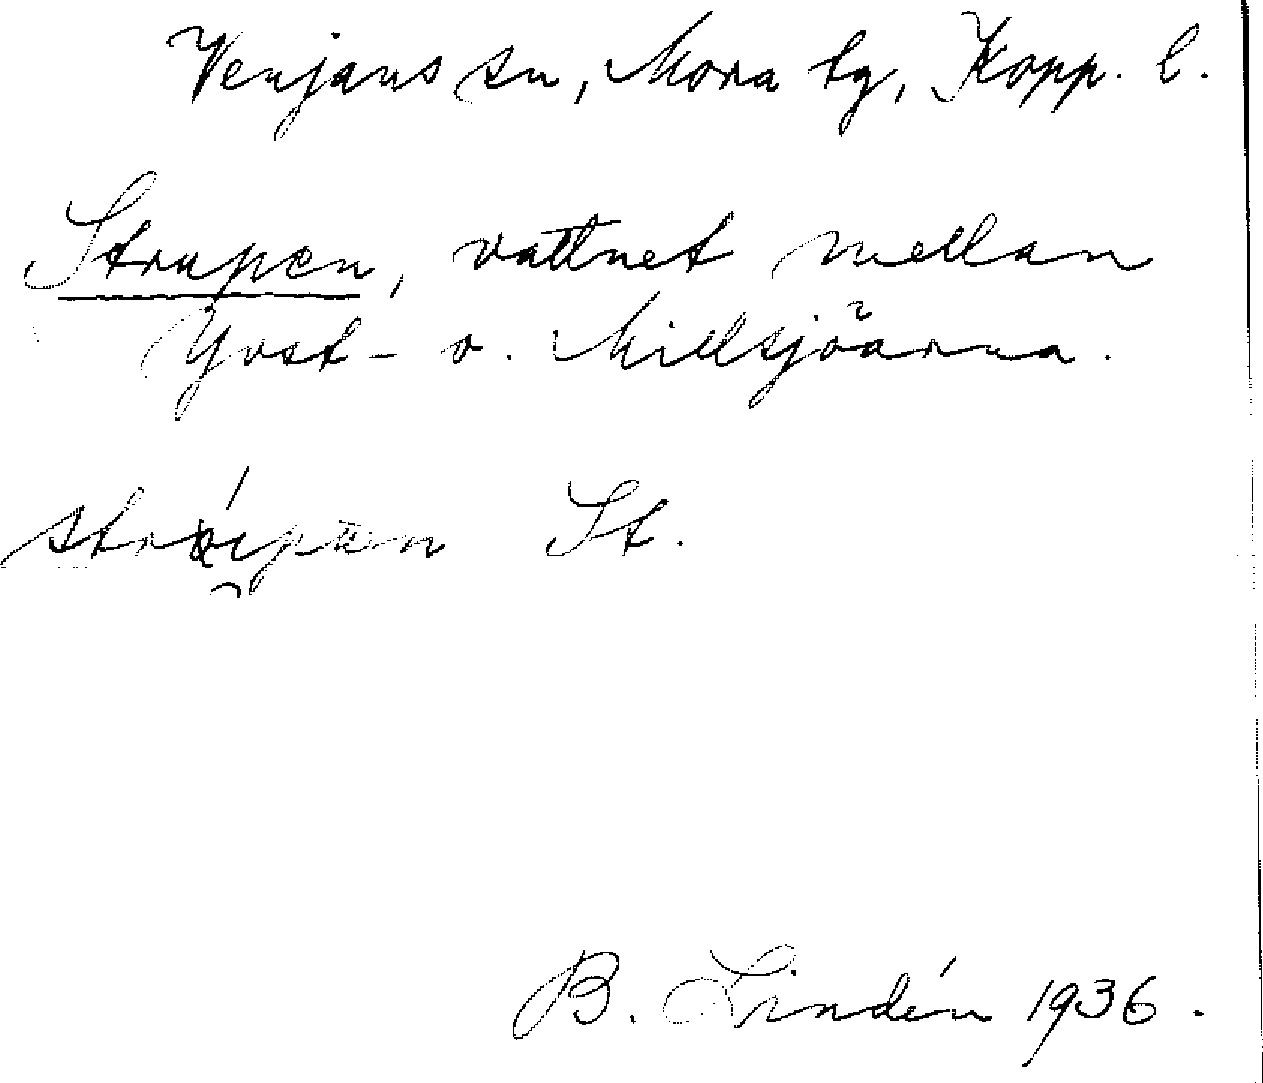 Venjans sn, Mora tg, Kopp. l.
Strupen, vattnet mellan
Yvst- o. Millsjöarna.
St.
B. Lindén 1936.